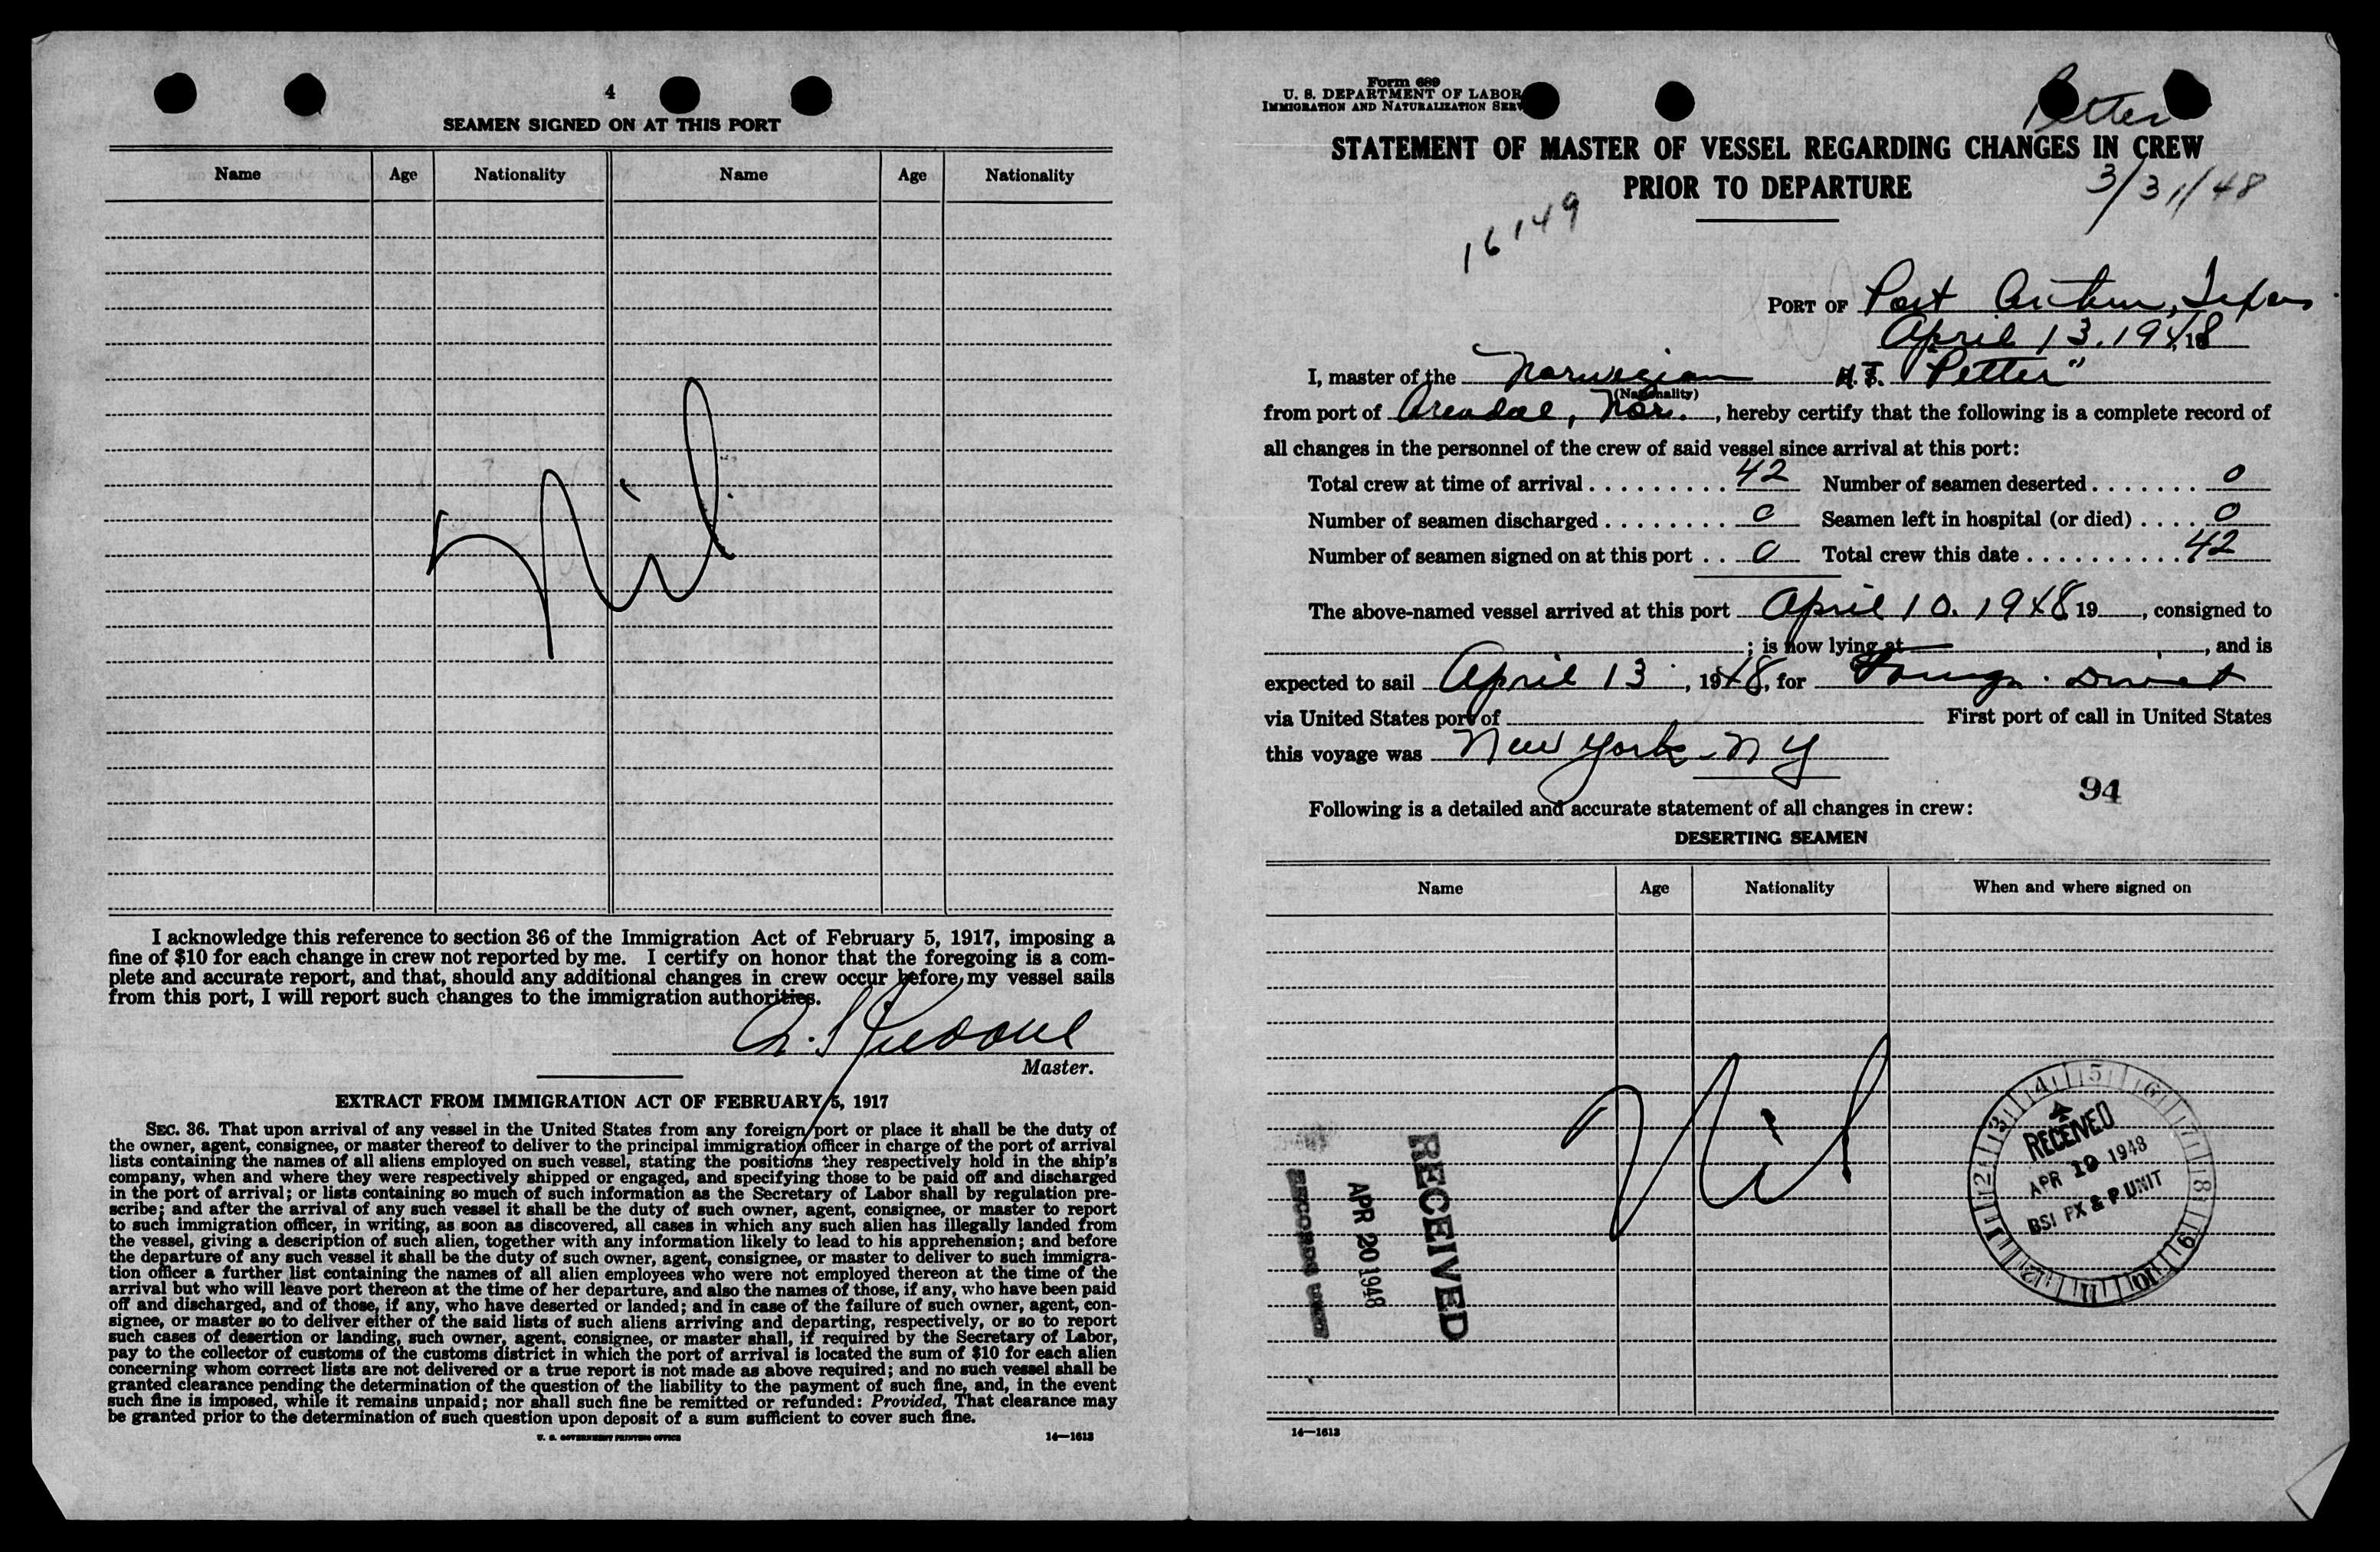 4
SEAMEN SIGNED ON AT THIS PORT
Name Age Nationality Name Age Nationality
Nil
I acknowledge this reference to section 36 of the Immigration Act of February 5, 1917, imposing a
fine of $10 for each change in crew not reported by me. I certify on honor that the foregoing is a com-
plete and accurate report, and that, should any additional changes in crew occur before my vessel sails
from this port, I will report such changes to the immigration authorities.
Master.
EXTRACT FROM IMMIGRATION ACT OF FEBRUARY 5, 1917
SEC. 36. That upon arrival of any vessel in the United States from any foreign port or place it shall be the duty of
the owner, agent, consignee, or master thereof to deliver to the principal immigration officer in charge of the port of arrival
lists containing the names of all aliens employed on such vessel, stating the positions they respectively hold in the ship's
company, when and where they were respectively shipped or engaged, and specifying those to be paid off and discharged
in the port of arrival; or lists containing so much of such information as the Secretary of Labor shall by regulation pre-
scribe; and after the arrival of any such vessel it shall be the duty of such owner, agent, consignee, or master to report
to such immigration officer, in writing, as soon as discovered, all cases in which any such alien has illegally landed from
the vessel, giving a description of such alien, together with any information likely to lead to his apprehension; and before
the departure of any such vessel it shall be the duty of such owner, agent, consignee, or master to deliver to such immigra-
tion officer a further list containing the names of all alien employees who were not employed thereon at the time of the
arrival but who will leave port thereon at the time of her departure, and also the names of those, if any, who have been paid
off and discharged, and of those, if any, who have deserted or landed; and in case of the failure of such owner, agent, con-
signee, or master so to deliver either of the said lists of such aliens arriving and departing, respectively, or so to report
such cases of desertion or landing, such owner, agent, consignee, or master shall, if required by the Secretary of Labor,
pay to the collector of customs of the customs district in which the port of arrival is located the sum of $10 for each alien
concerning whom correct lists are not delivered or a true report is not made as above required; and no such vessel shall be
granted clearance pending the determination of the question of the liability to the payment of such fine, and, in the event
such fine is imposed, while it remains unpaid; nor shall such fine be remitted or refunded: Provided, That clearance may
be granted prior to the determination of such question upon deposit of a sum sufficient to cover such fine.
U. S. GOVERNMENT PRINTING OFFICE 14—1613
Form 689
U. S. DEPARTMENT OF LABOR
IMMIGRATION AND NATURALIZATION SERV
Petter
STATEMENT OF MASTER OF VESSEL REGARDING CHANGES IN CREW
PRIOR TO DEPARTURE
3/31/48
16149
PORT OF Port Arthur, Texas
April 13. 1948, 19
I, master of the Norwegian "Petter"
(Nationality)
from port of Arendal, Nor., hereby certify that the following is a complete record of
all changes in the personnel of the crew of said vessel since arrival at this port:
Total crew at time of arrival 42 Number of seamen deserted 0
Number of seamen discharged 0 Seamen left in hospital (or died) 0
Number of seamen signed on at this port 0 Total crew this date 42
The above-named vessel arrived at this port April 10. 1948 19, consigned to
; is now lying at —, and is
expected to sail April 13, 1948, for
via United States port of First port of call in United States
this voyage was New York N Y
94
Following is a detailed and accurate statement of all changes in crew:
DESERTING SEAMEN
Name Age Nationality When and where signed on
Nil
RECEIVED
APR 19 1948
BSI PX & P. UNIT
RECEIVED
APR 20 1948
RECORDS UNIT
14—1613